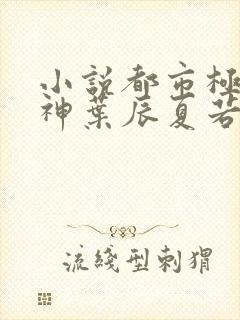 小説都市極
神葉辰夏若
流綫型刺猬